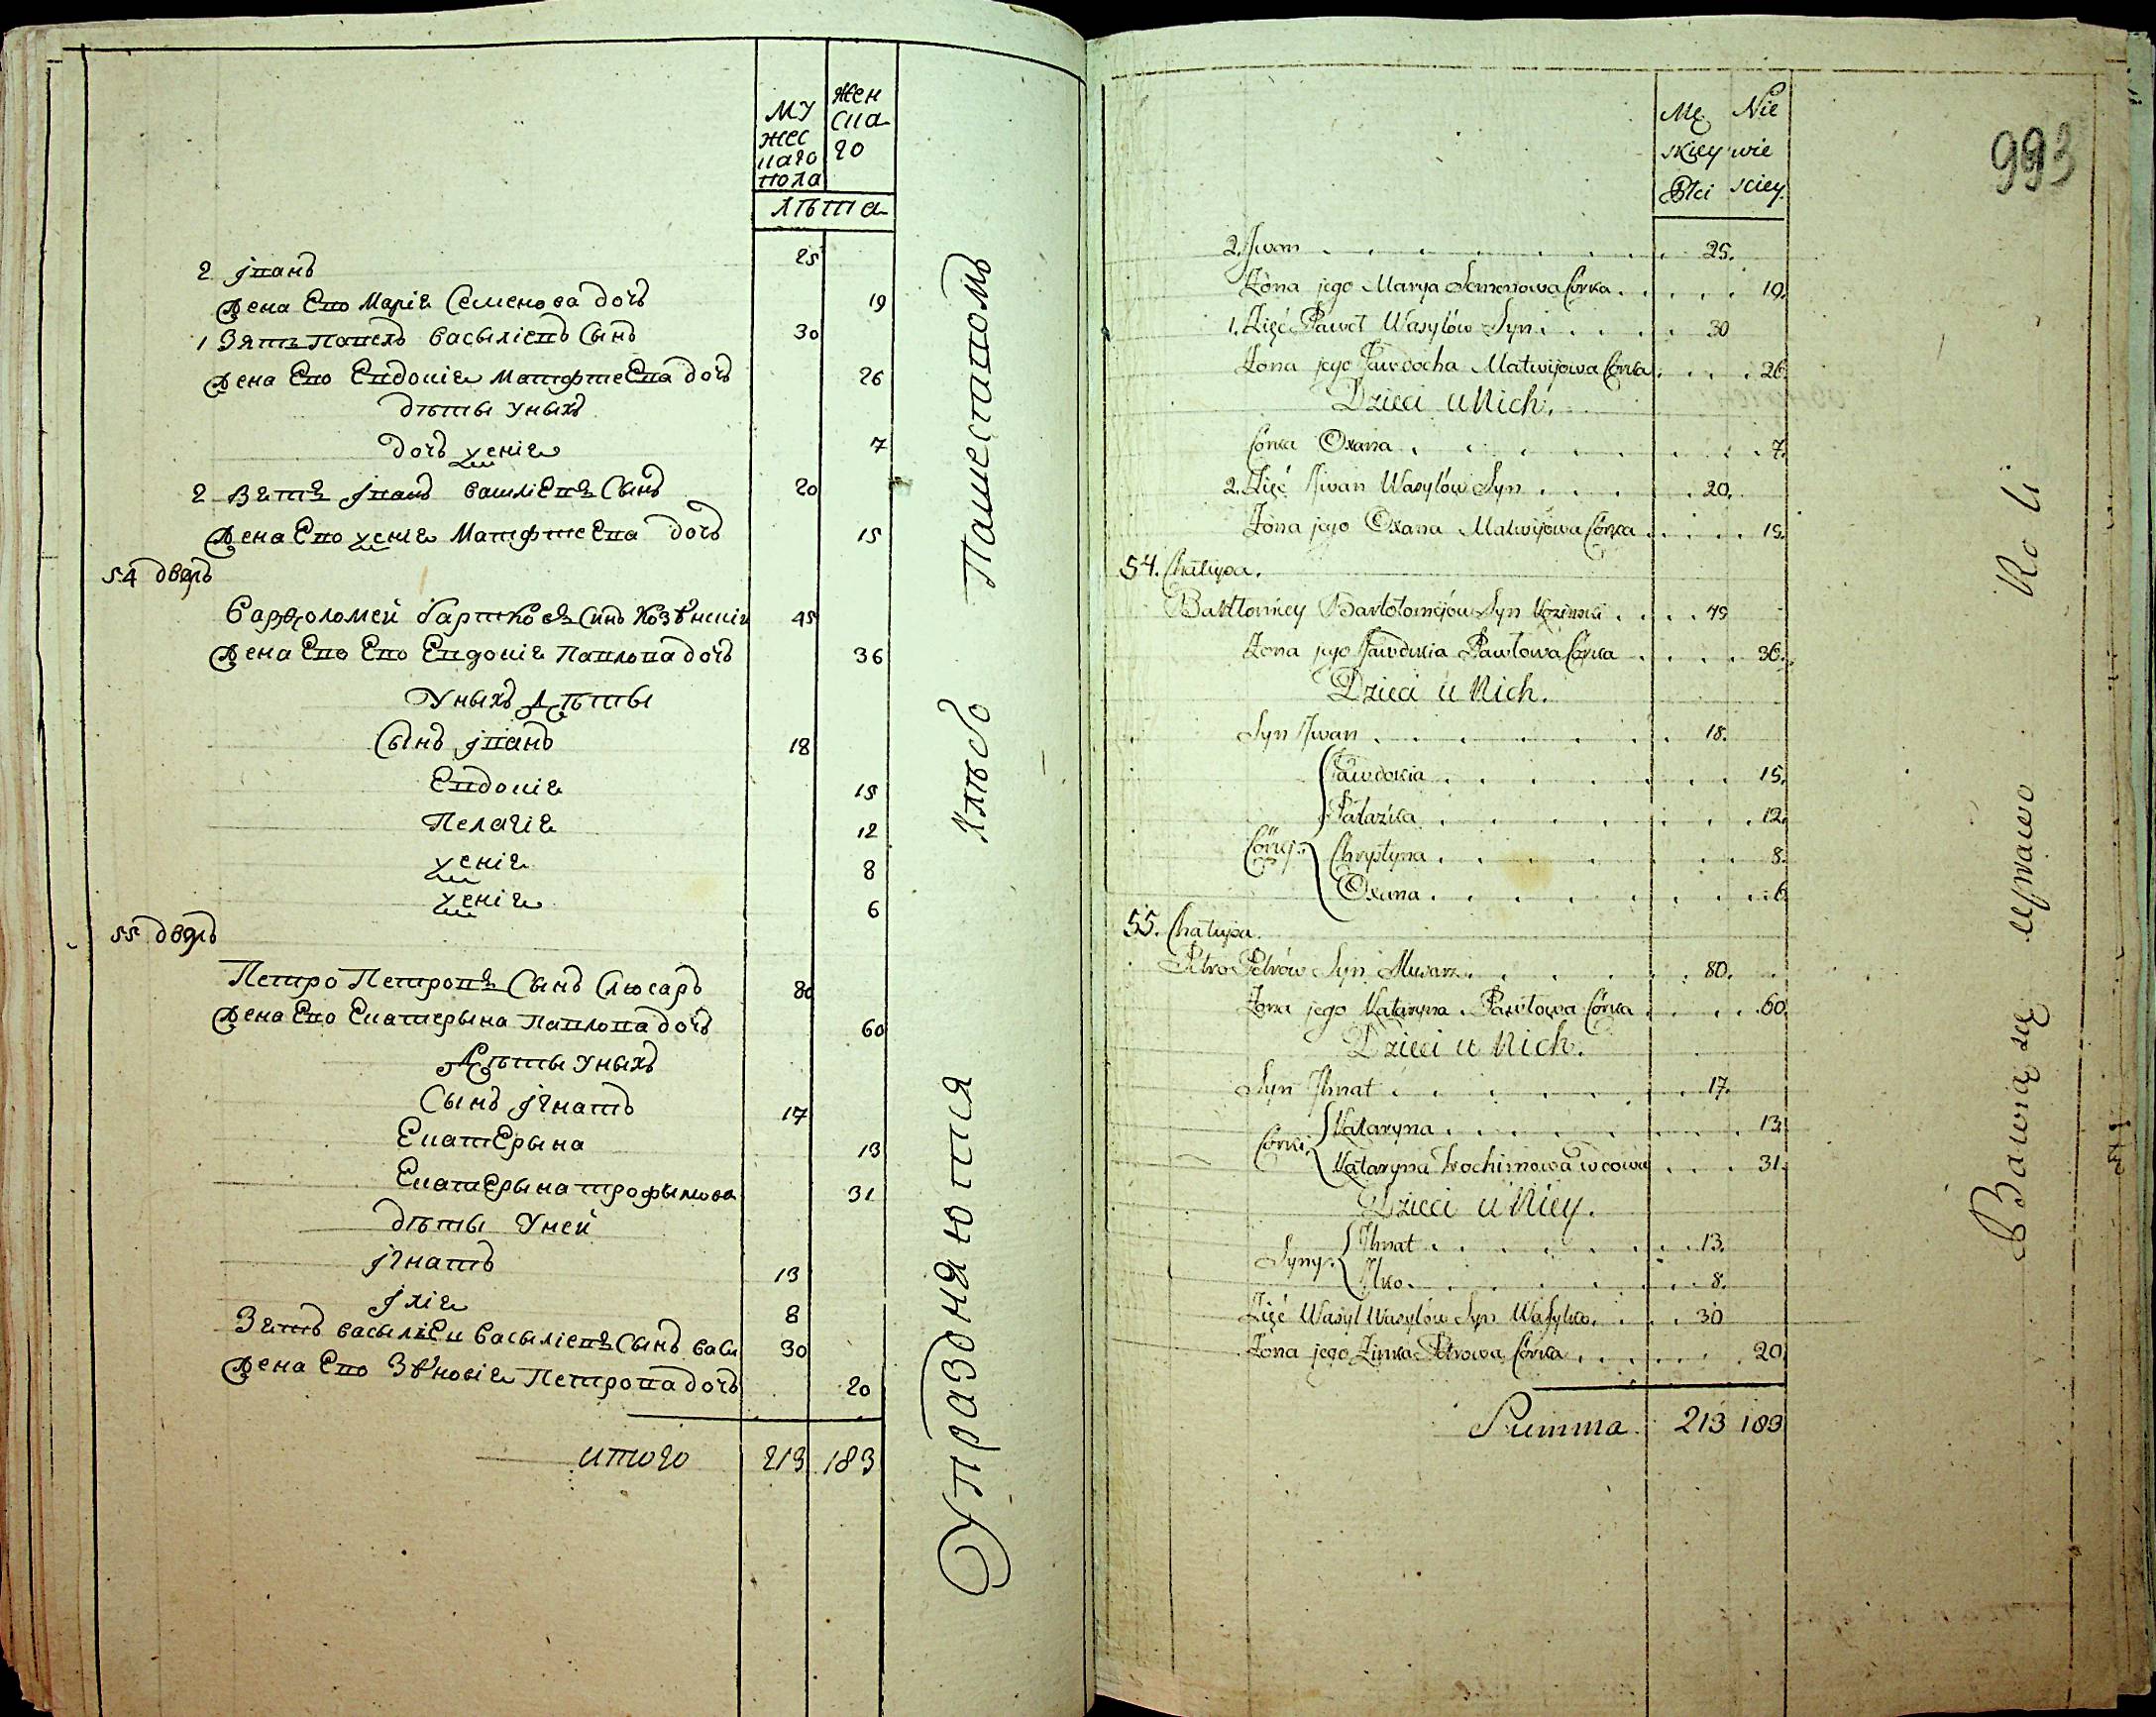 МУ
жес
каго
пола
Жен
ска
го
лѣта
2 Іванъ 25
Жена Его Маріѧ Семенова дочь 19
1 Зять Павелъ Василіевъ Сынъ 30
Жена Его Евдокіѧ Матфѣева дочь 26
дѣты Уныхъ
дочь Ѯеніѧ 7
2 Зѧть Іванъ Василіевъ Сынъ 20
Жена Его Ѯеніѧ Матфѣева дочь 15
54 дворъ
Варфоломей Бартковъ Синъ 45
Жена Его Его Евдокіѧ Павлова дочь 36
Уныхъ дѣты
Сынъ Іванъ 18
Евдокіѧ 15
Пелагіѧ 12
Ѯеніѧ 8
Ѯеніѧ 6
55 дворъ
Петро Петровъ Сынъ Слюсаръ 80
Жена Его Екатерына Павлова дочь 60
Дѣты Уныхъ
Сынъ Ігнатъ 17
Екатерына 13
Екатерына трофымова 31
дѣты Уней
Ігнатъ 13
Іліѧ 8
Зѧть Василіевъ Сынъ 30
Жена Его Зѣновіѧ Петрова дочь 20
итого 213 183
Упражняются Хлѣбо Пашествомъ
993
Mę
skiey
Płci
Nie
wie
sciey
2. Jwan 25.
Żona jego Marya Semenowa Córka 19.
1. Zięć Paweł Wasylów Syn 30
Żona jego Jawdocha Matwijowa Córka 26.
Dzieci u Nich.
Córka Oxana 7.
2. Zięć Jwan Wasylów Syn 20.
Żona jego Oxana Matwijowa Córka 15.
54. Chałupa.
Bartłomiey Bartołomijów Syn 45
Żona jego Jawdokia Pawłowa Córka 36.
Dzieci u Nich.
Syn Jwan 18.
Jawdokia 15.
Pałazka 12.
Córki Chrystyna 8.
Oxana 6.
55. Chałupa.
Petro Petrów Syn Slusarz 80.
Żona jego Kataryna Pawłowa Córka 60.
Dzieci u Nich.
Syn Jhnat 17.
Kataryna 13.
Córki
Kataryna Trochimowa wdowa 31.
Dzieci u Niey.
Jhnat 13.
Syny
Jlko 8.
Zięć Wasyl Wasylów Syn 30
Żona jego Zinka Petrowa Córka 20.
Summa 213 183
Bawią się uprawą Roli